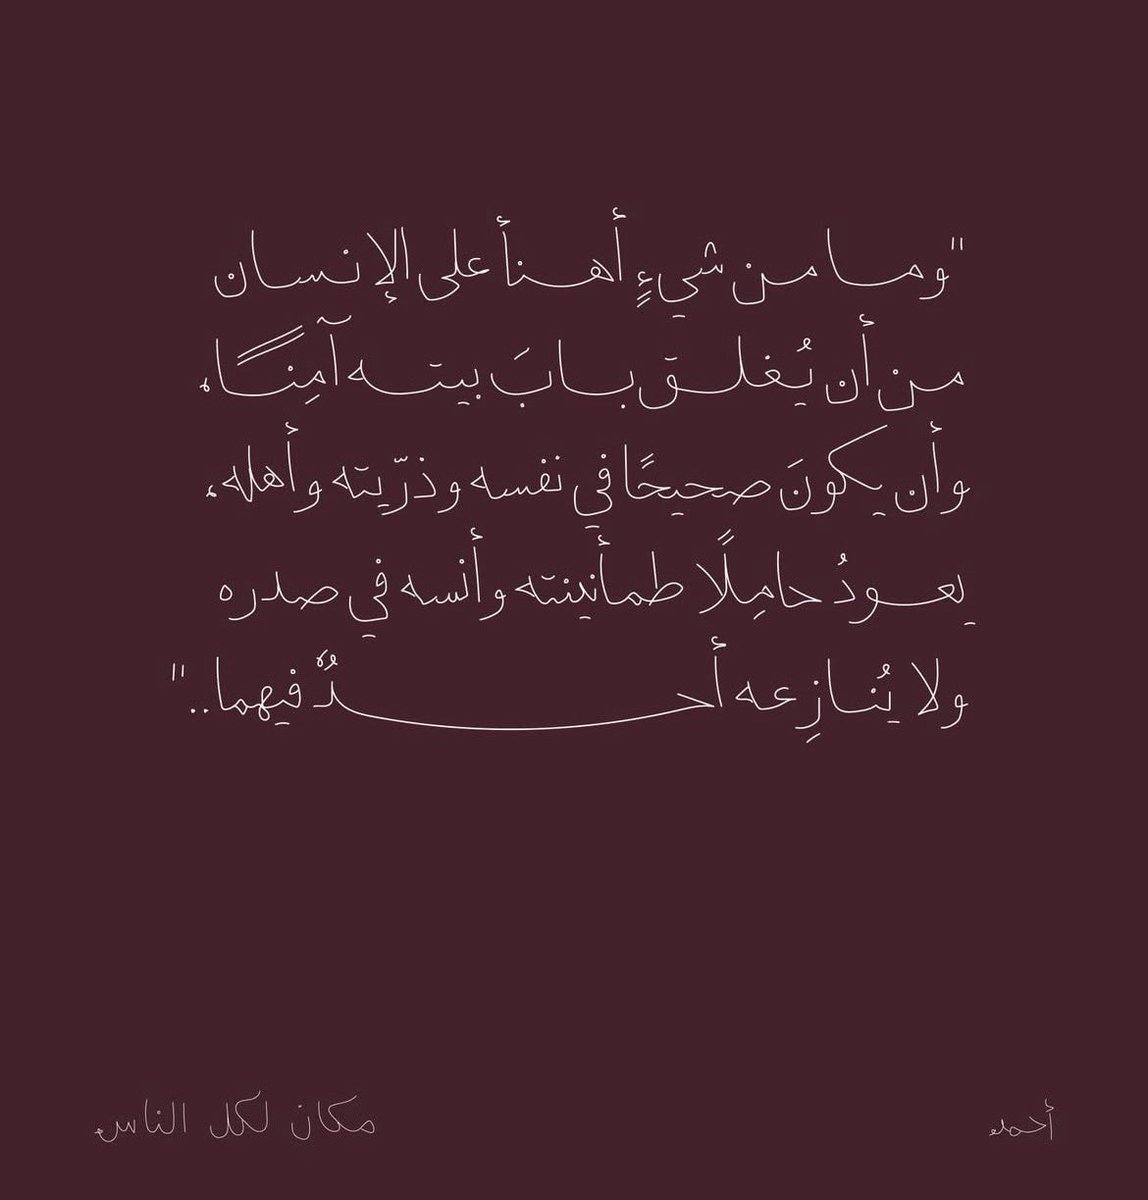 "وما من شيءٍ أهنأ على الإنسان
من أن يُغلق بابَ بيته آمِنًا،
وأن يكونَ صحيحًا في نفسه وذرّيته وأهله،
يعودُ حامِلًا طمأنينته وأنسه في صدره
ولا يُنازِعه أحدٌ فيهما.."
أحمد
مكان لكل الناس